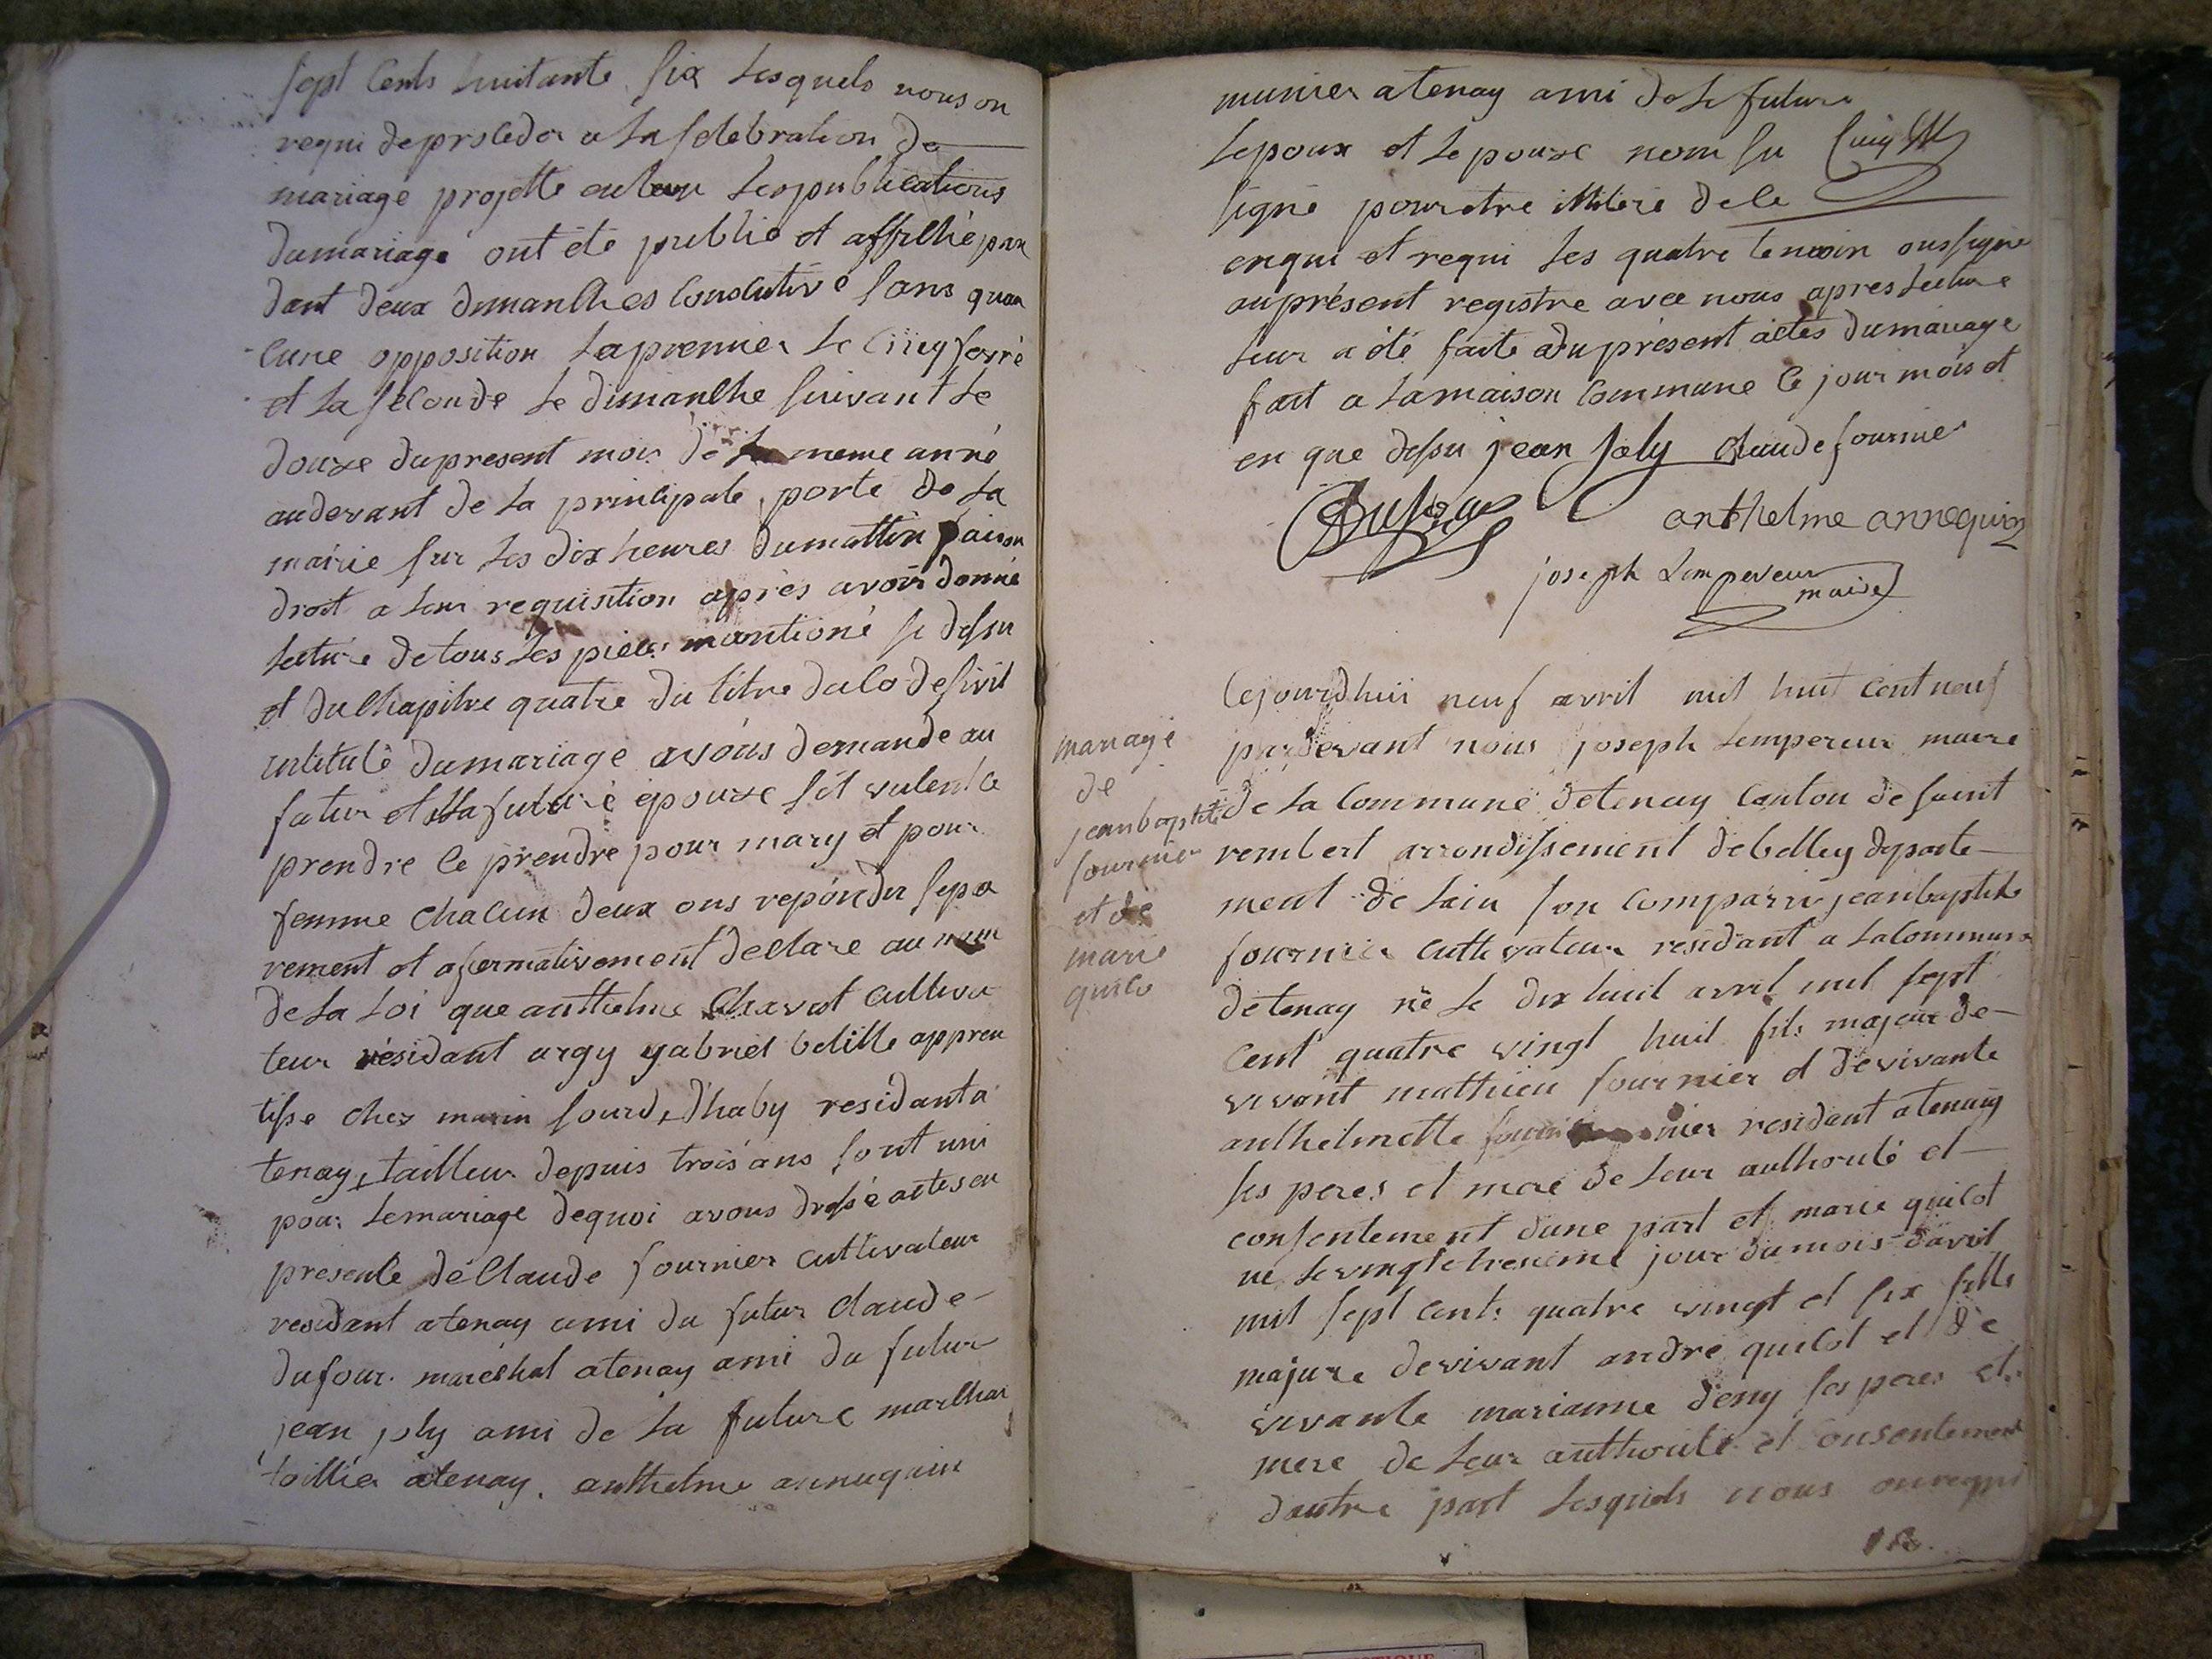 sept Cents huitante six Lesquels nous on
requi de proceder a La selebration de
mariage projette Les publications
du mariage ont été publié et affiché pan
dant deux dimanches Consecutive sans quau
Cune opposition La premier Le Cinq
et La seconde Le dimanche suivant Le
douze du present mois de La meme anné
au devant de La principale porte de La
mairie sur Les dix heures du mattin faison
droit a Leur requisition après avoir donné
Lecture de tous Les pieces mantioné si dessu
et du Chapitre quatre du titre du Code sivil
intitulé du mariage avons demande au
futur et La future epouze sil vulent ce
prendre Ce prendre pour mary et pour
femme chacun deux ons repondu sepa
rement et afermativement declare au nom
de La Loi que anthelme Chavot Culliva
teur residant argy gabriel belille appren
tisse chez marin sourd, dhaby residant a
tenay, tailleur depuis trois ans sont uni
pour Le mariage de quoi avons dressé actes en
presente de Claude fournier Cuttivateur
residant atenay ami du futur claude
dufour marechal atenay ami du futur
jean joly ami de La future marchan
toillier atenay. anthelme annequin
munier atenay ami de La future
Lepoux et Lepouze nom su
signé pour etre illitéré de Ce
enqui et requi Les quatre temoin ons signé
au présent registre avec nous apres Lecture
Leur a été faite du présent actes du mariage
fait a La maison Commune Ce jour mois et
en que dessu jean joly claude fournier
anthelme annequin
joseph Lempereur
maire
mariage
de
jean baptiste
fournier
et de
marie
guilo
Cejourdhuii neuf avril mil huit Cent neuf
pardevant nous joseph Lempereur maire
de La Commune de tenay Canton de saint
rembert arrondissement de belley departe
ment de Lain son Comparu jean baptiste
fournier Cuttivateur residant a La Commune
de tenay né Le dix huit avril mil sept
Cent quatre vingt huit fils majeur de
vivant mathieu fournier et de vivante
anthelmette nier residant atenay
ses peres et mere de Leur authorité et
consentement dune part et marie guilot
né Le vingt treisieme jour du mois davril
mil sept Cents quatre vingt et six fille
majure de vivant andré guilot et de
vivante marianne deny ses peres et
mere de Leur authorité et Consentement
dautre part Lesquels nous on requi